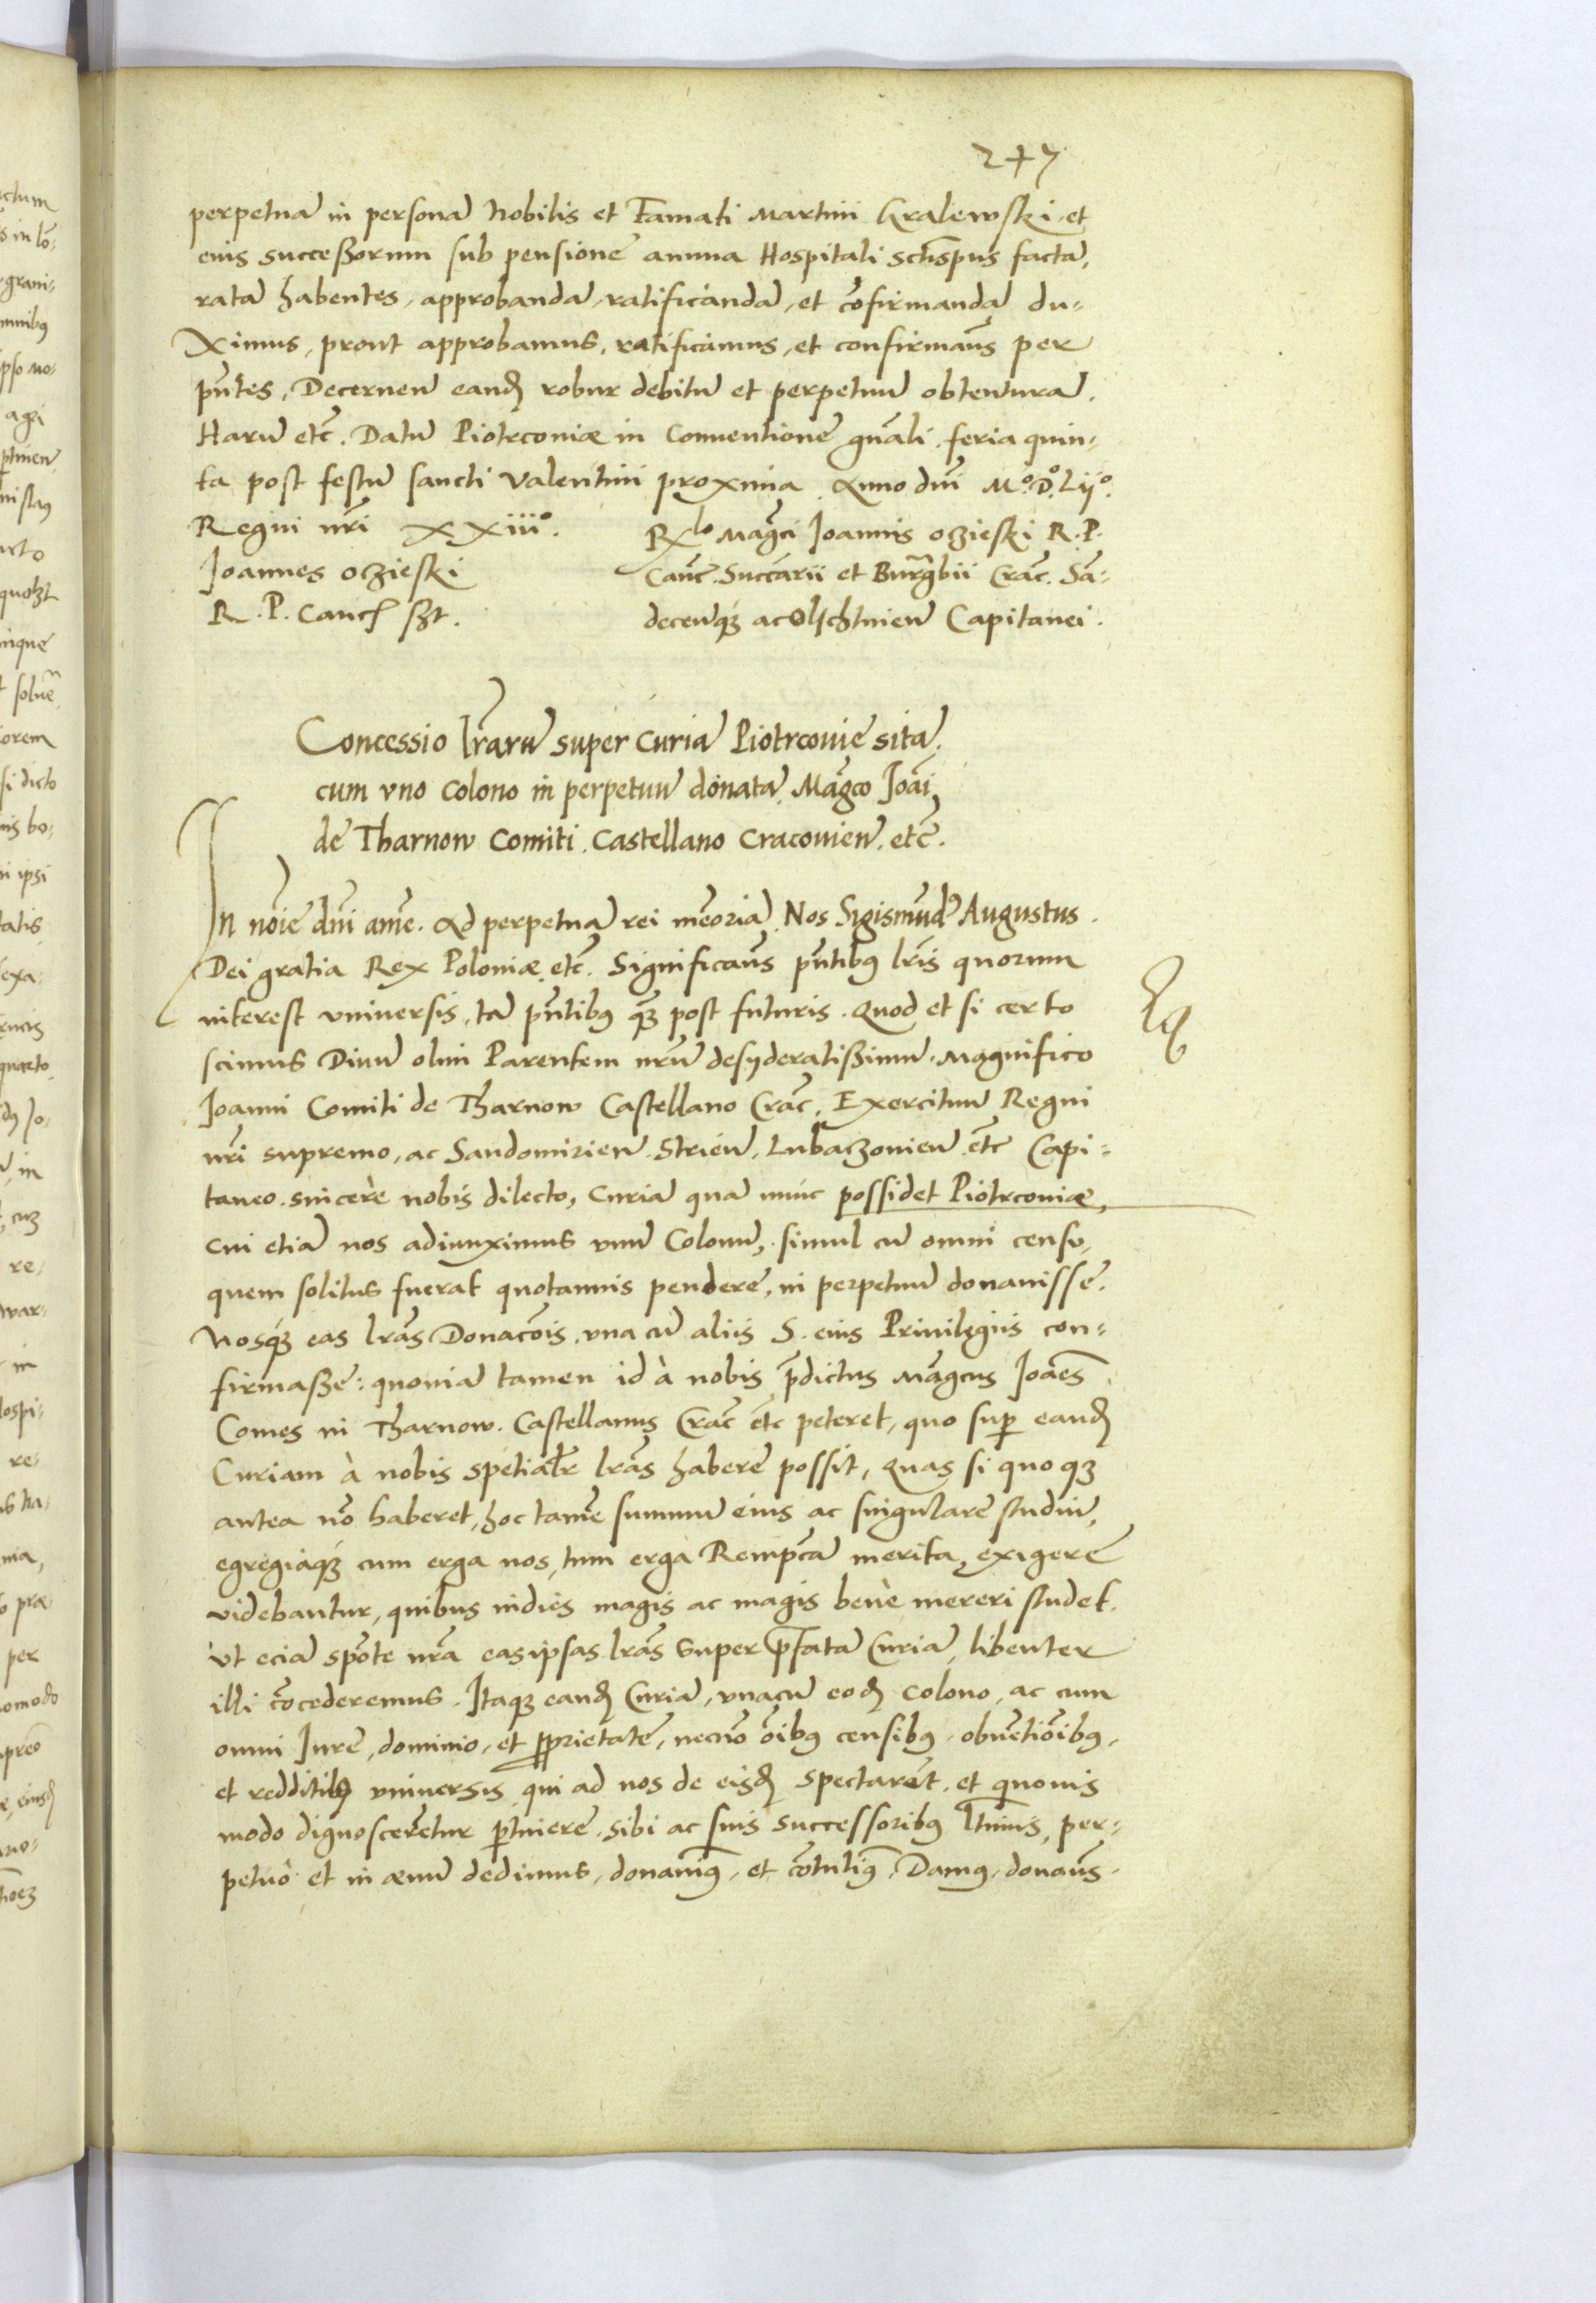 247
perpetuā in personā Nobilis et Famati Martini Kralewski et
eius successorum sub pensione annua Hospitali facta,
ratā habentes, approbandā, ratificandā, et cōfirmandā du-
ximus, prout approbamus, ratificamus, et confirmam̄s per
pn̄tes, Decernen̄ eand robur debitū et perpetuū obtenturā.
Harū etc̄. Datū Piotrconiæ in Conuentione gn̄ali feria quin-
ta post festū sancti Valentini proxima. Anno dn̄i Mº.Dº.Lijº.
Regni nr̄i XXiiiº.
Joannes oczieski
R. P. Canc szt.
Rlo Maḡci Joannis oczieski R. P.
Canc̄. Succ̄arii et Burgr̄abii Crac̄. Sā-
decen̄q ac Olschtinen̄ Capitanei.
Concessio lr̄arū super Curiā Piotrcouie sitā,
cum vno Colono in perpetuū donatā, Maḡco Joan̄i
de Tharnow Comiti Castellano Cracouien̄. etc̄.
In noīe dn̄i amē. Ad perpetuā rei mēoriā. Nos Sigismūd9 Augustus
Dei gratia Rex Poloniæ etc̄. Significam̄s pn̄tib9 lr̄is quorum
interest vniuersis, tā pn̄tib9 q̄ post futuris. Quod et si certo
scimus Diuū olim Parentem nr̄um desyderatissimū. Magnifico
Joanni Comiti de Tharnow Castellano Crac̄. Exercituū Regni
nr̄i supremo, ac Sandomirien̄. Strien̄. Lubaczouien̄ etc̄ Capi-
taneo. sincerè nobis dilecto, Curiā quā nunc possidet Piotrconiæ,
cui etiā nos adiunximus vnū Colonū, simul cū omni censu,
quem solitus fuerat quotannis pendere, in perpetuū donauisse.
Nosq eas lr̄as Donacōis, vna cū aliis S. eius Priuilegiis con-
firmasse: quoniā tamen id à nobis p̄dictus Maḡcus Joan̄es
Comes in Tharnow. Castellanus Crac̄ etc̄ peteret, quo sup̄ eand
Curiam à nobis spetialr̄ lr̄as habere possit, quas si quoq
antea nō haberet, hoc tamē summū eius ac singulare studiū,
egregiaq cum erga nos, tum erga Remp̄cā merita, exigere
videbantur, quibus indies magis ac magis bene mereri studet.
Vt eciā spōte nr̄a easipsas lr̄as super p̄fatā Curiā, libenter
illi cōcederemus. Itaq eand Curiā, vnacū eod colono, ac cum
omni Jure, dominio, et proprietate, necnō oīb9 censib9, obuētiōib9,
et redditib9 vniuersis qui ad nos de eisd spectarēt, et quouis
modo dignoscerētur ptinere, sibi ac suis successorib9 ltimis, per-
petuò et in æuū dedimus, donauim9, et cōtulim9, Dam9, donam̄s